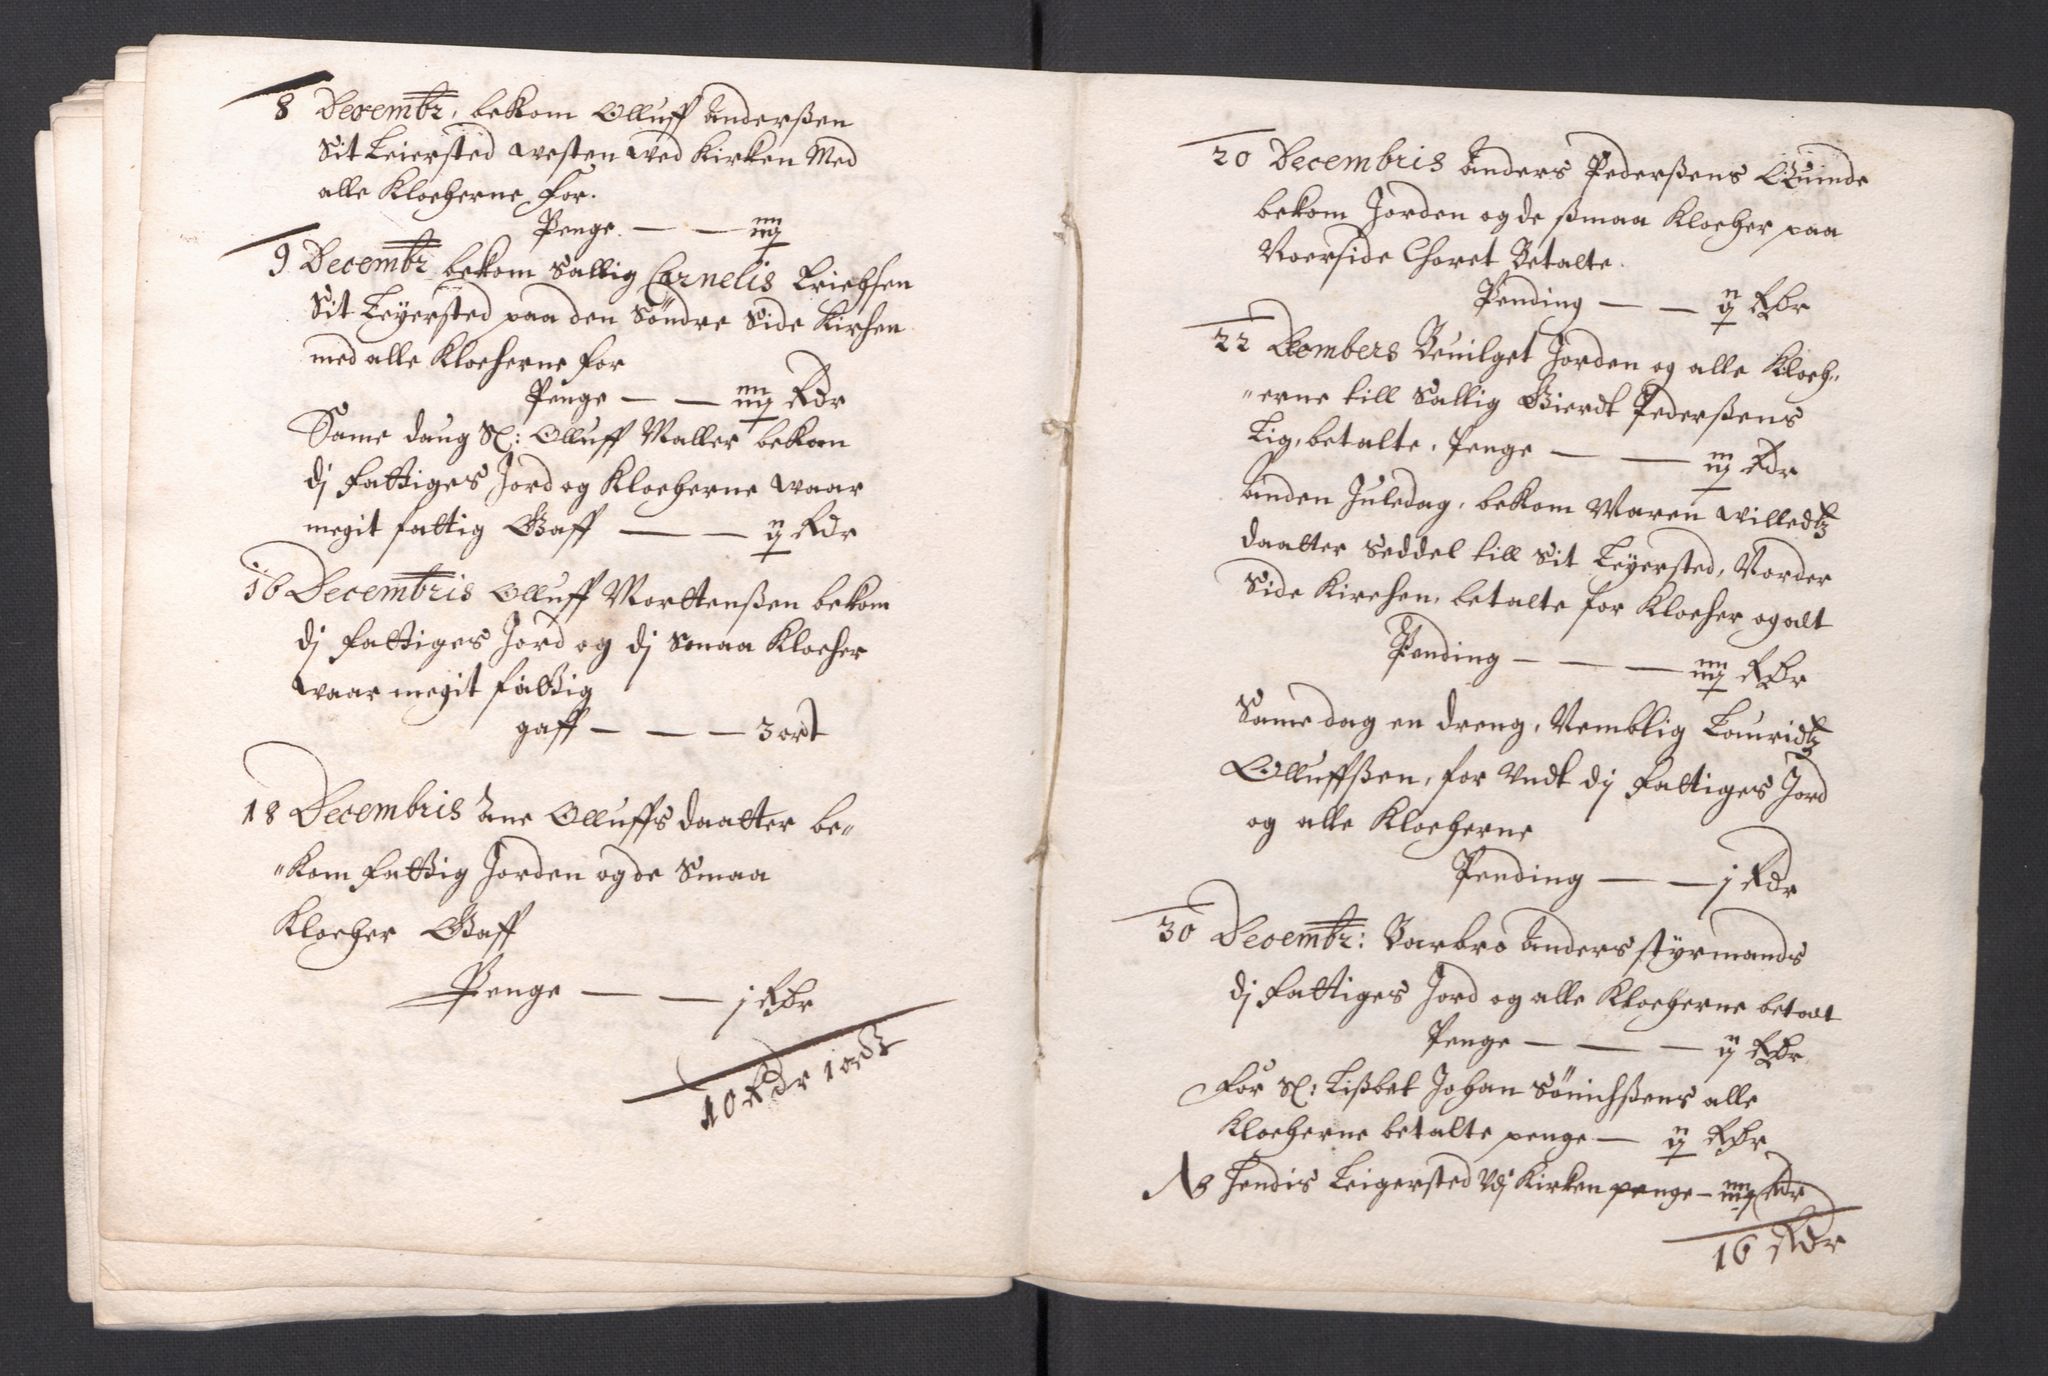 8 Decembr, bekom Olluff Anderßen
Sit Leiersted westen wed Kirken Med
alle Klocherne For.
Penge — — iiij
9 Decembr bekom Sallig Cornelis Friechsen
Sit Leyersted paa den Söndre Side Kirchen
med alle Klocherne for
Penge — — iiij Rdr
Same daug Sl: Olluff Maller bekom
dj Fattiges Jord og Klocherne waar
megit fattig Gaff — — ij Rdr
16 Decembris Olluff Morttenßen bekom
dj Fattiges Jord og dj Smaa Klocher
waar megit fattig
gaff — — — 3 ort
18 Decembris Ane Olluffs daatter be"
"kom Fattig Jorden og de Smaa
Klocher Gaff
Penge — — j Rdr
10 Rdr 1 ort
20 Decembris Anders Pederßens Quinde
bekom Jorden og de ßmaa Klocher paa
Noerside Choret Betalte.
Pending — — ij Rdr
22 Decembers Beuilget Jorden og alle Kloch"
"erne till Sallig Gierdt Pederßens
Lig, betalte, Penge — — iij Rdr
Anden Juledag, bekom Maren Willedtz
daatter Seddel till Sit Leyersted, Norder
Side Kirchen, betalte for Klocher og alt
Pending — — — iiij Rdr
Same dag en dreng, Nemblig Lauridtz
Olluffßen, for Vndt dj Fattiges Jord
og alle Klocherne
Pending — — j Rdr
30 Decembr: Barbro Anders styrmands
dj Fattiges Jord og alle Klocherne betalt
Penge — — — ij Rdr
For Sl: Lißbet Johan Sönichßens alle
Klocherne betalte penge — ij Rdr
NB Hendis Leigersted Vdj Kirken penge — iiij Rdr
16 Rdr